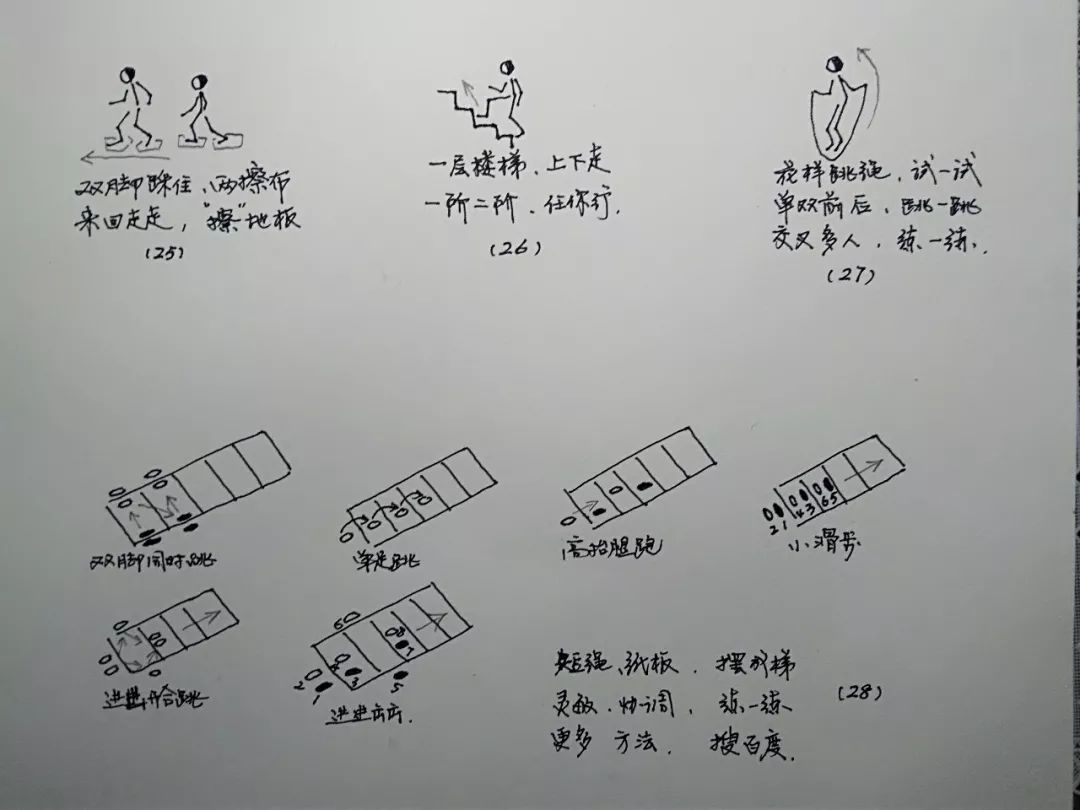 双脚踩住、两擦布
来回走走，“擦”地板
(25)
一层楼梯、上下走
一阶二阶、任你行.
(26)
花样跳绳，试一试
单双前后、跳一跳
交叉多人，练一练.
(27)
双脚同时跳
单足跳
高抬腿跑
2 1 4 3 6 5
小滑步
进进开合跳
2 1 4 3 6 5 8 7
进进出出.
短绳、纸板、摆成梯
灵敏、协调，练一练
更多方法、搜百度.
(28)